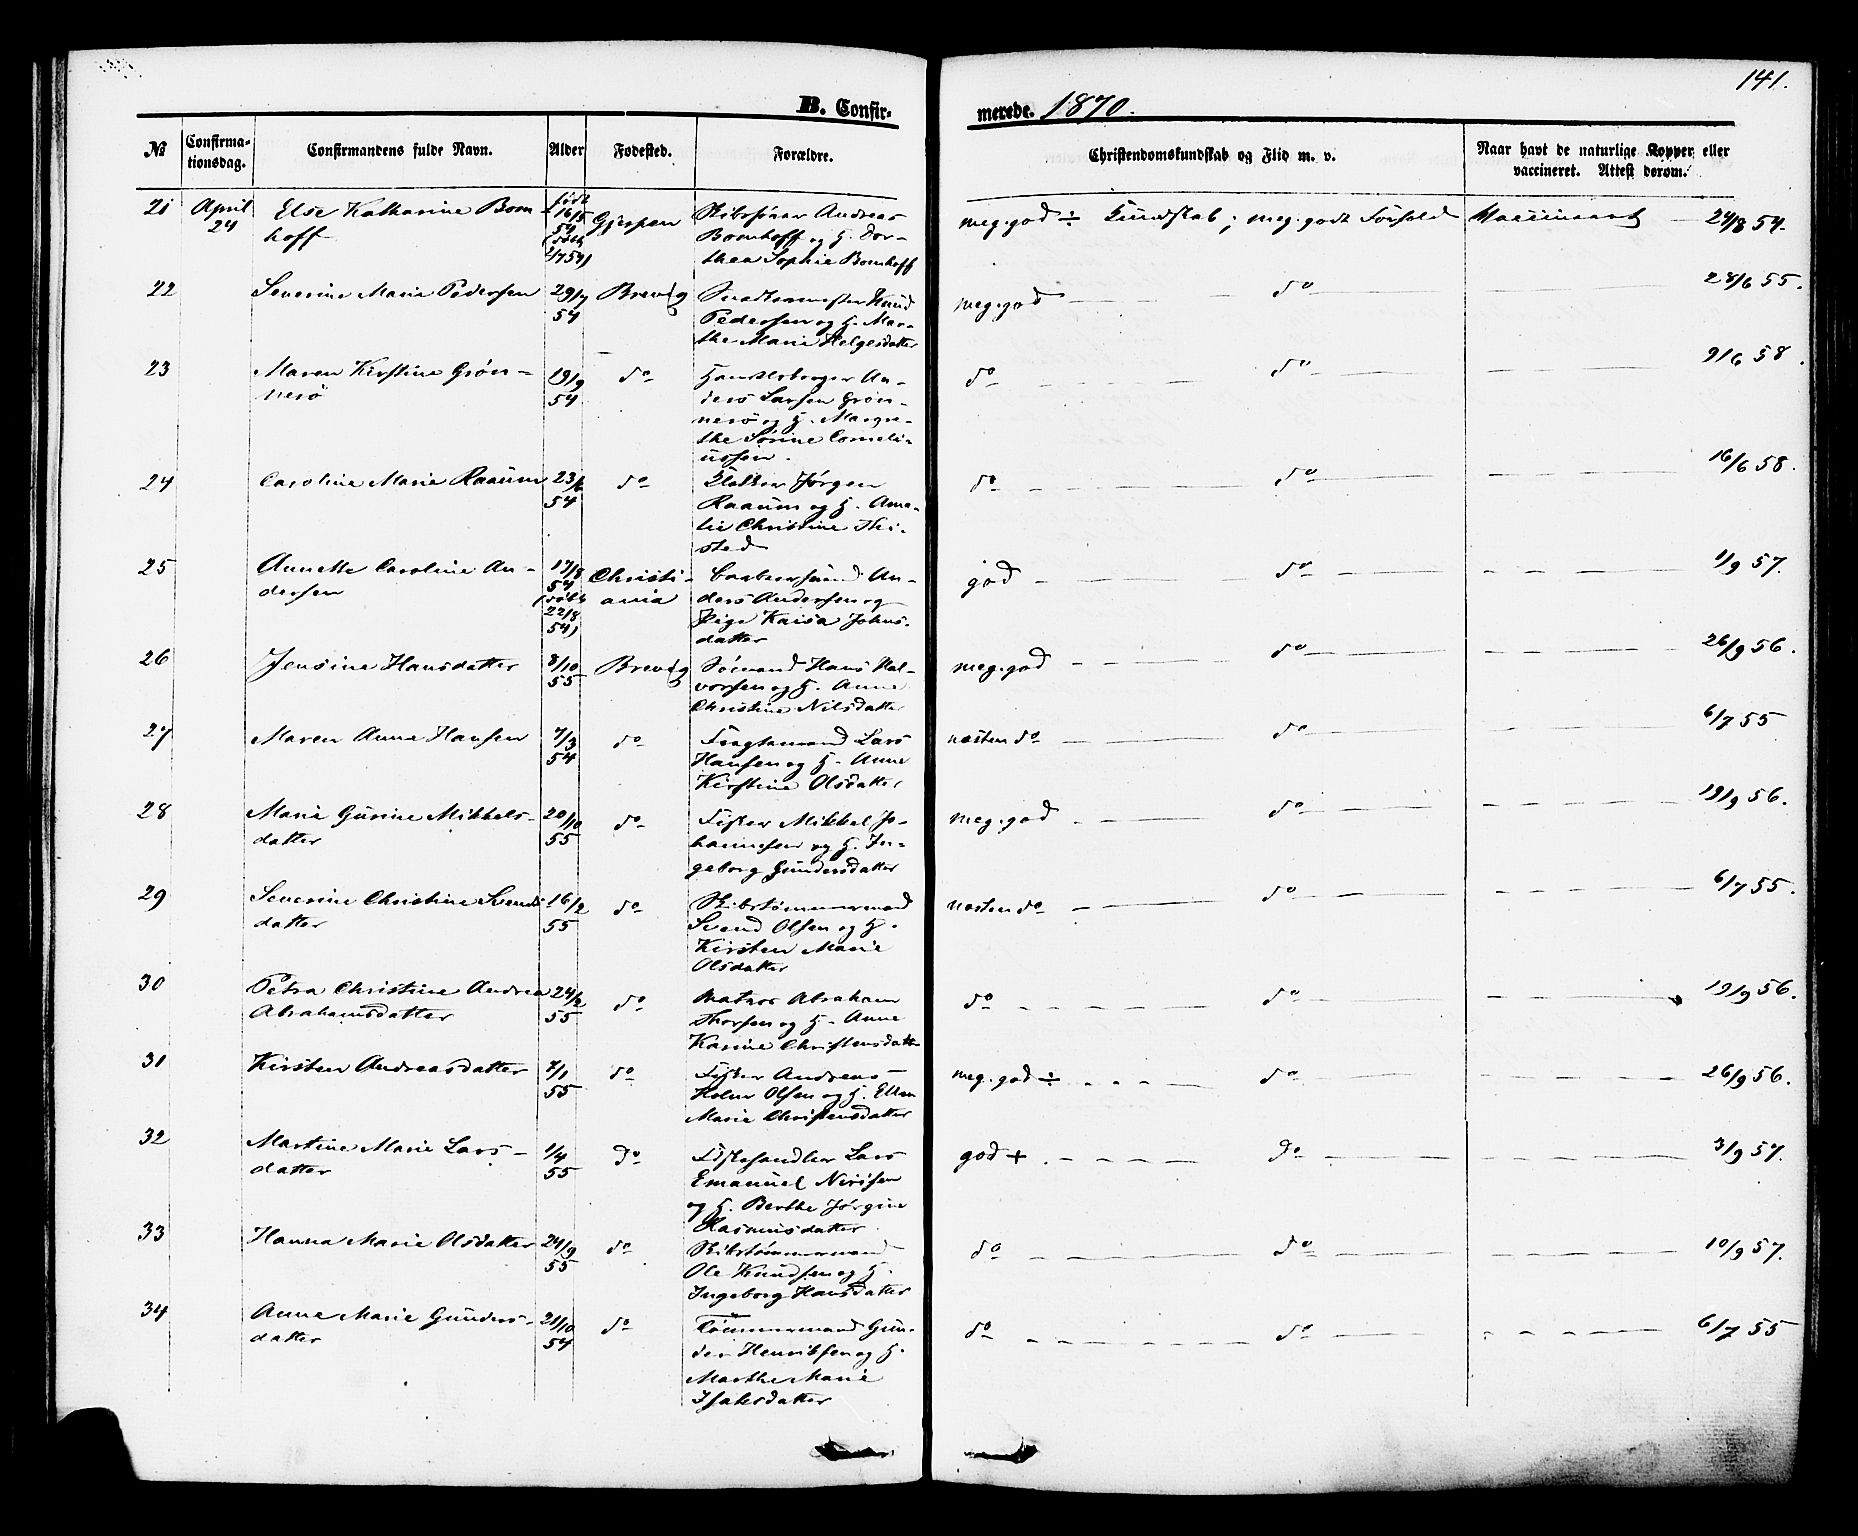 141.
B. Confir-
merede. 1870.
№
Confirma-
tionsdag.
Confirmandens fulde Navn.
Alder
Fødested.
Forældre.
Christendomskundskab og Flid m. v.
Naar havt de naturlige Kopper eller
vaccineret. Attest derom.
21 April Else Katharine Bom
24 hoff
født
16/5
54
(døbt
2/7 54)
Gjerpen
Skibsfører Andreas
Bomhoff og H. Dor-
thea Sophie Bomhoff
meg. god ÷ Kundskab; meg. godt Forhold Vaccineret 24/8 54.
22 Severine Marie Pedersen 29/7 Brevig
54
Knud
Pedersen og H. Mar-
the Marie Helgesdatter
meg. god do 28/6 55.
23 Maren Kirstine Grøn-
nerø
19/9
54
do
Handelsborger An-
ders Larsen Grøn-
nerø og H. Margre-
the Sørine Corneli-
ussen.
do do 9/6 58.
24 Caroline Marie Raaum 23/6 do
54
Jørgen
Raaum og H. Ama-
lie Christine Thi-
sted
do do 16/6 58.
25 Annette Caroline An-
dersen
17/8
54
(døbt
22/8
54)
Christi-
ania
An-
ders Andersen og
Pige Kaisa Johns-
datter
god do 1/9 57.
26 Jensine Hansdatter 8/10 Brevig
55
Sømand Hans Hal-
vorsen og H. Anne
Christine Nilsdatter
meg. god do 26/9 56.
27 Maren Anne Hansen 7/3 do
54
Fragtemand Lars
Hansen og H. Anne
Kirstine Olsdatter
næsten do do 6/7 55
28 Marie Gurine Mikkels-
datter
20/10
55
do
Fisker Mikkel Jo-
hannesen og H. In-
geborg Gundersdatter
meg. god do 19/9 56.
29 Severine Christine Svends
datter
16/2
55
do
Skibstømmermand
Svend Olsen og H.
Kirsten Marie
Olsdatter
næsten do do 6/7 55.
30 Petra Christine Andrea
Abrahamsdatter
24/2
55
do
Matros Abraham
Thorsen og H. Anne
Karine Christensdatter
do do 19/9 56.
31 Kirsten Andreasdatter 7/1 do
55
Fisker Andreas
Holm Olsen og H. Ellen
Marie Christensdatter
meg. god ÷ do 26/9 56.
32 Martine Marie Lars-
datter
1/4
55
do
Fiskehandler Lars
Emanuel Nirisen
og H. Berthe Jørgine
Rasmusdatter
god + do 3/9 57.
33 Hanna Marie Olsdatter 24/9 do
55
Skibstømmermand
Ole Knudsen og H.
Ingeborg Hansdatter
do do 10/9 57.
34 Anne Marie Gunders-
datter
21/10
54
do
Tømmermand Gun-
der Henriksen og H.
Marthe Marie
Isaksdatter
do do 6/7 55